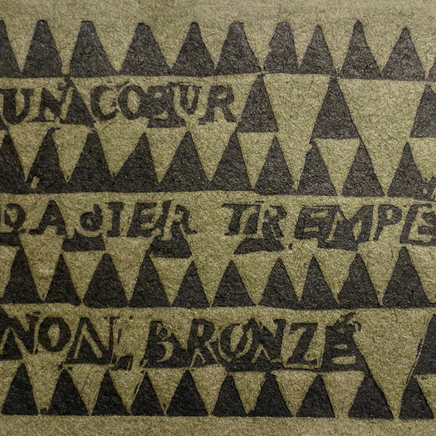 UN CŒUR
D'ACIER TREMPE
NON BRONZÉ